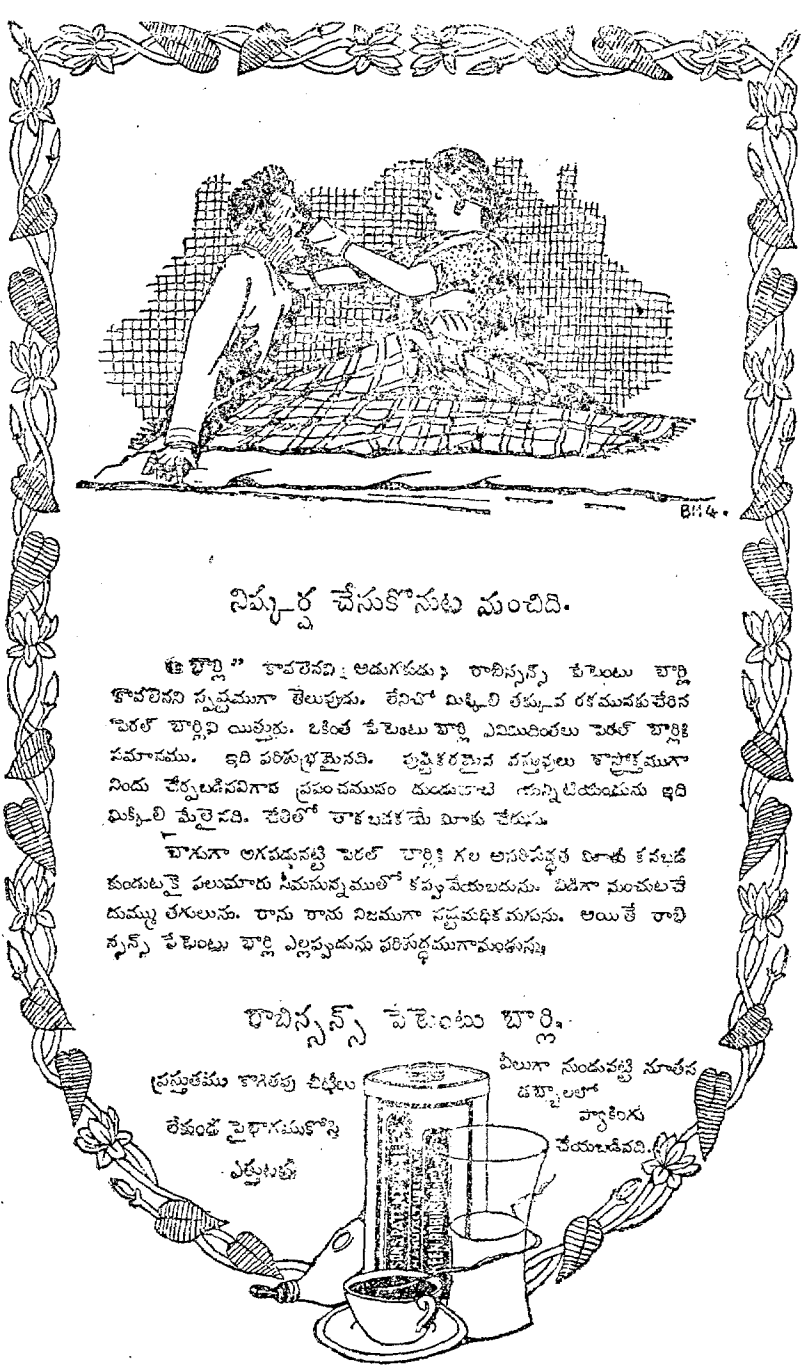 BM4.
నిష్కర్ష చేసుకొనుట మంచిది.
"బార్లి" కావలెనని అడుగవద్దు; రాబిన్సన్స్ పేటెంటు బార్లి
కావలెనని స్పష్టముగా తెలుపుడు. లేనిచో మిక్కిలి తక్కువ రకమునకుచేరిన
పెరల్ బార్లిని యిత్తురు. ఒకింత పేటెంటు బార్లి ఎనిమిదింతలు పెరల్ బార్లికి
సమానము. ఇది పరిశుభ్రమైనది. పుష్టికరమైన వస్తువులు శాస్త్రోక్తముగా
నిందు చేర్చబడినవిగాన ప్రపంచమునం దుండు యన్నిటియందును ఇది
మిక్కిలి మేలైనది. చేతితో తాకబడకయే మీకు చేరును.
బాగుగా అగపడునట్టి పెరల్ బార్లికి గల అపరిశుద్ధత మీకు కనబడ
కుండుటకై పలుమారు సీమసున్నముతో కప్పవేయబడును. విడిగా నుంచుటచే
దుమ్ము తగులును. రాను రాను నిజముగా నష్టమధికమగును. అయితే రాబి
న్సన్స్ పేటెంటు బార్లి ఎల్లప్పుడును పరిశుద్ధముగానుండును.
రాబిన్సన్స్ పేటెంటు బార్లి.
ప్రస్తుతము కాగితపు చీట్లీలు
లేకుండ పైభాగముకోసి
ఎత్తుటకు
వీలుగా నుండునట్టి నూతన
డబ్బాలలో
ప్యాకింగు
చేయబడినది.